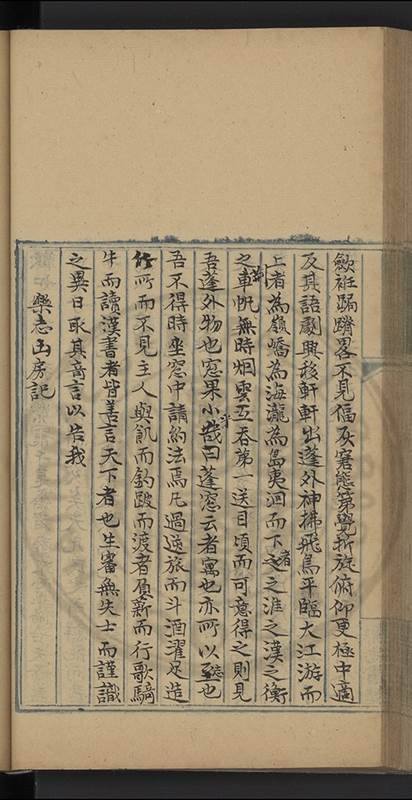 歛袵跼蹐畧不見偪灰窘態第覺折旋俯仰更極中適
及其語劇興移軒軒出蓬外神搏飛馬平臨大江游而
上者為嶺嶠為海瀧為島夷洄而下者之淮之漢之衡
之車帆無時烟雲互吞第一送目頃而可意得之則見
吾蓬外物也窓果小哉曰蓬窓云者寓也亦所以志也
吾不得時坐窓中講約法焉凡過逆旅而斗酒濯足造
竹所而不見主人與飢而釣跛而渡者負薪而行歌騎
牛而讀漢書者皆善言天下者也生審無失士而謹識
之異日取其奇言以告我
樂志山房記